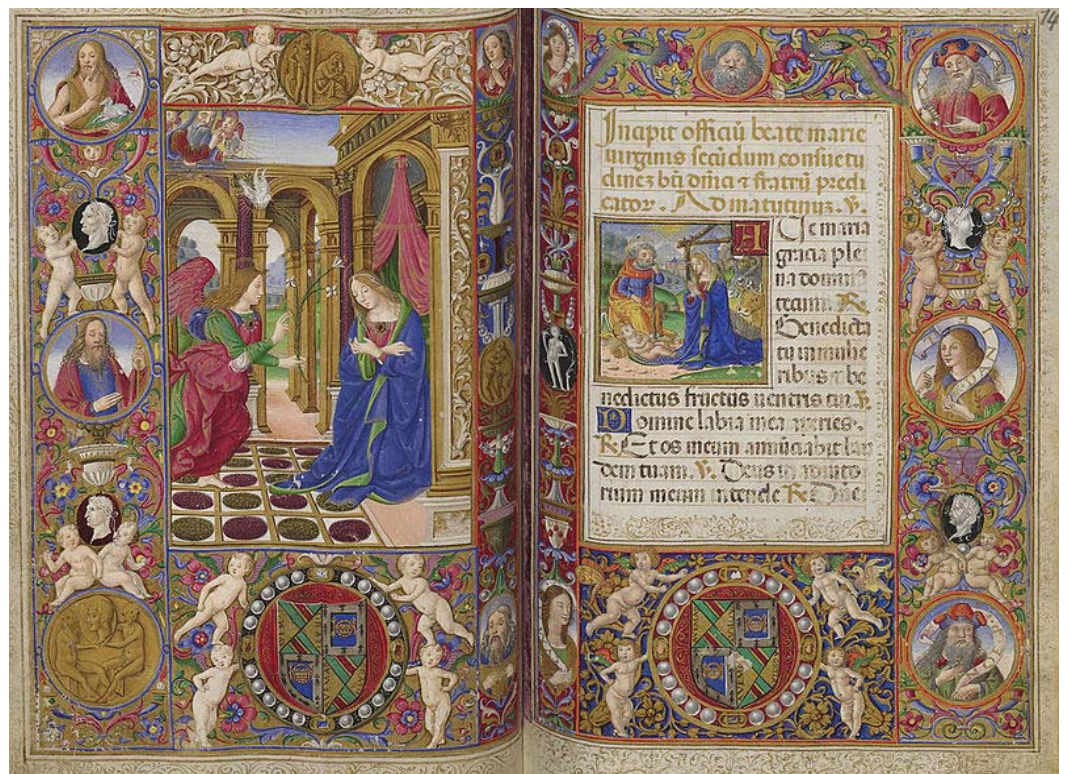 14
Incipit officiū beate marie
virginis secūdum consuetu
dinez bti dm̄ici ⁊ fratrū predi
cator. Ad matutinuz. V.
AUe maria
gracia ple
na dominꝰ
tecum R
Benedicta
tu in mulie
ribus ⁊ be
nedictus fructus uentris tui. V.
Domine labia mea aperies.
R Et os meum annūciabit lau
dem tuam. V. Deus in adiuto
rium meum intende R Dne